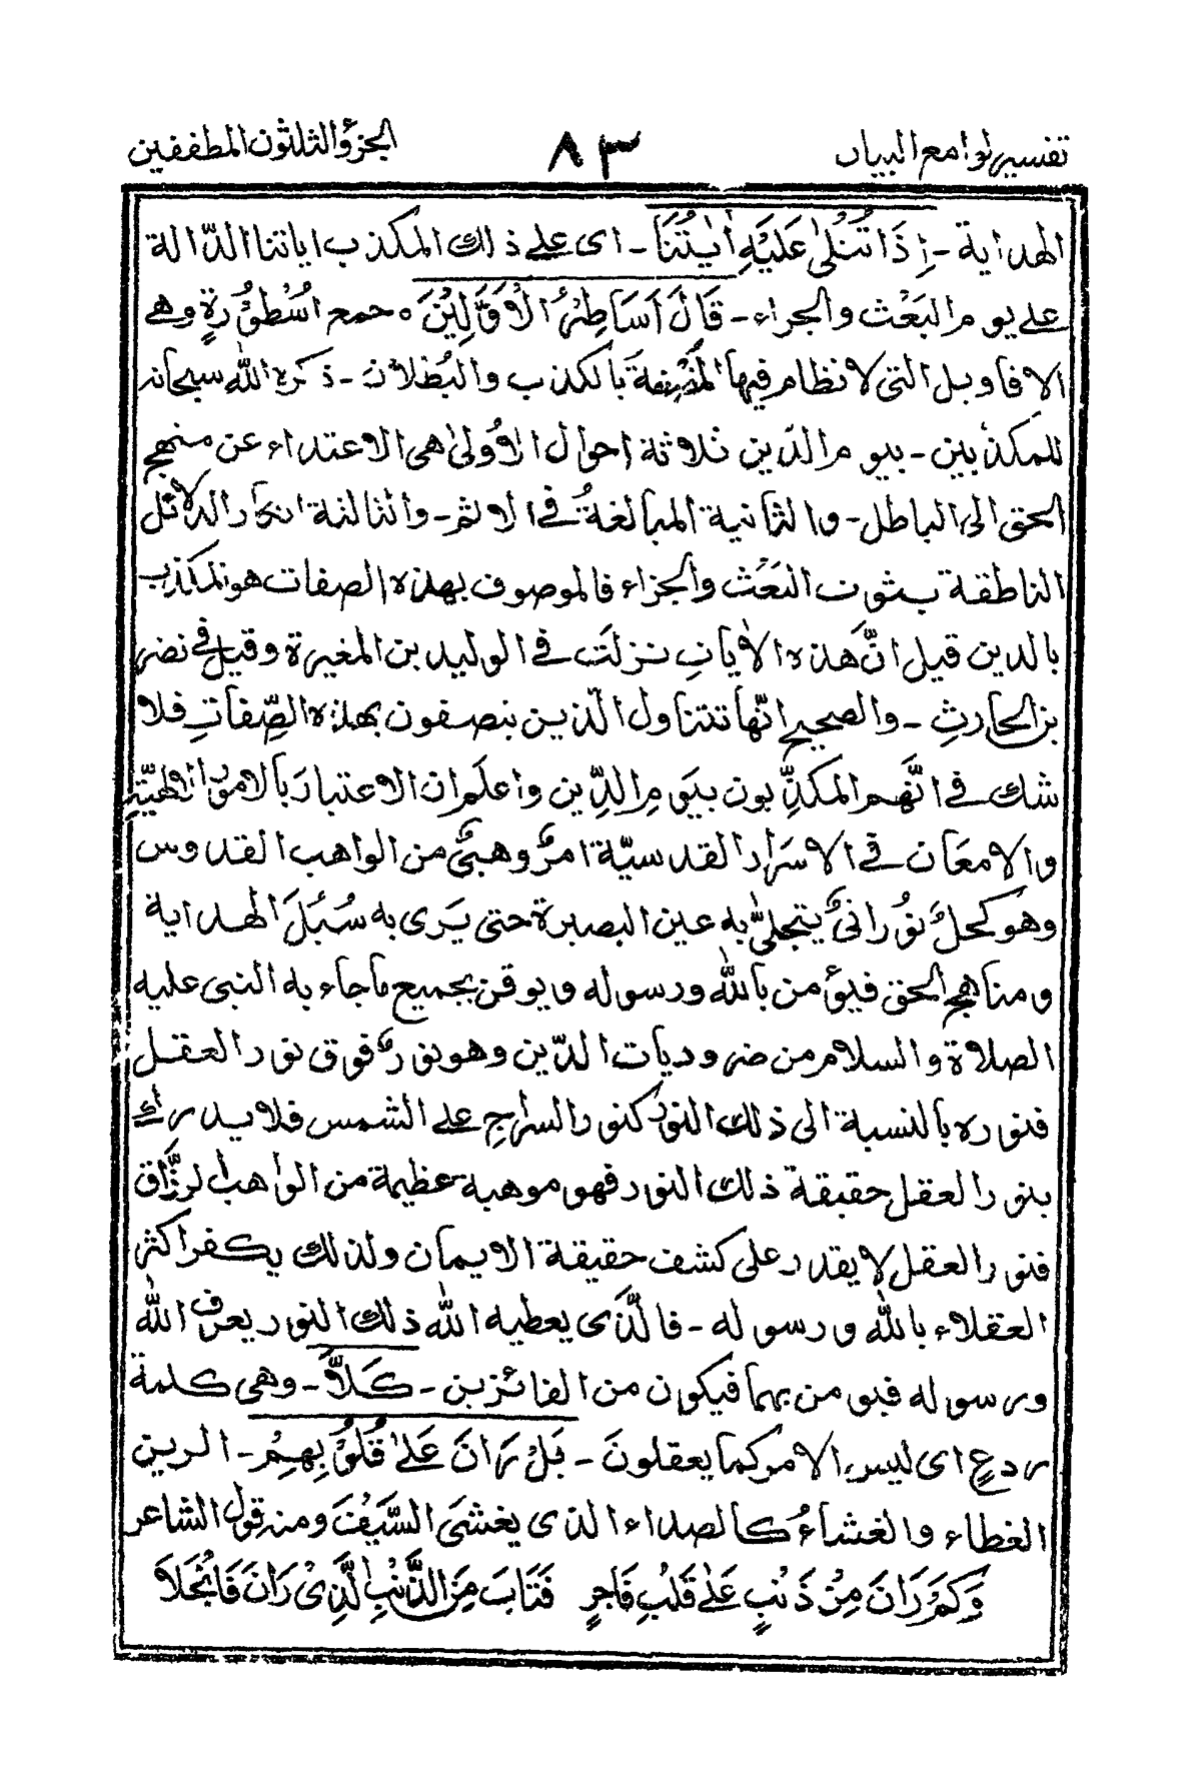 تفسير لوامع البيان ٨٣ الجزؤ الثلثون المطففين
الهداية - اِذَا تُتْلٰى عَلَيْهِ اٰيٰتُنَا - اى على ذلك المكذب اياتنا الدّالة
على يوم البَعْث والجزاء - قَالَ اَسَاطِيْرُ الْاَوَّلِيْنَ ه جمع اُسْطُوْرةٍ وهى
الاقاويل التى لا نظام فيها المتصفة بالكذب والبُطلان - ذكره الله سبحانه
للمكذّبين - بيوم الدّين ثلاثة احوال الأولىٰ هى الاعتداء عن منهج
الحق الى الباطل - والثانية المبالغةُ فى الاثم - والثالثة انكار الدلائل
الناطقة بثبوت البَعْث والجزاء فالموصوف بهذه الصفات هو المكذب
بالدين قيل انَّ هَذه الأيات نزلَت فى الوليد بن المغيرة وقيل فى نضر
بن الحارثِ - والصحيح انّها تتناول الّذين يتصفون بهذه الصِّفاتِ فلا
شك فى انَّهم المكذِّبون بيَومِ الدِّين واعلم ان الاعتبارَ بالامور الٰهيّة
والامعَان فى الاسرَار القدسيّة امرٌ وهبىٌّ من الواهب القدوس
وهو كحلٌ نُورانىٌّ يتجلىّٰ به عين البصيرة حتى يَرى به سُبُلَ الهداية
ومناهج الحق فيؤمن بالله ورسوله ويوقن بجميع ما جاء به النبى عليه
الصلاة والسلام من ضروريات الدّين وهو نورٌ فوق نور العقل
فنوره بالنسبة الى ذلك النور كنور السراجِ على الشمس فلا يدرك
بنور العقل حقيقة ذلك النور فهو موهبة عظيمة من الواهب الرزَّاق
فنور العقل لا يقدر على كشف حقيقة الايمان ولذلك يكفر اكثر
العقلاء بالله ورسوله - فالّذى يعطيه الله ذلك النور يعرف الله
ورسوله فيؤمن بهما فيكون من الفائزين - كَلَّا - وهى كلمة
ردعٍ اى ليس الامر كما يعقلونَ - بَلْ رَانَ عَلٰى قُلُوْبِهِمْ - الرين
الغطاء والغشاءُ كالصداء الذى يغشَى السَّيْفَ ومنه قول الشاعر
وَكَمْ رَانَ مِنْ ذَنْبٍ عَلٰى قَلْبِ فَاجِرٍ فَتَابَ مِنَ الذَّنْبِ الَّذِىْ رَانَ فَانْجَلَا